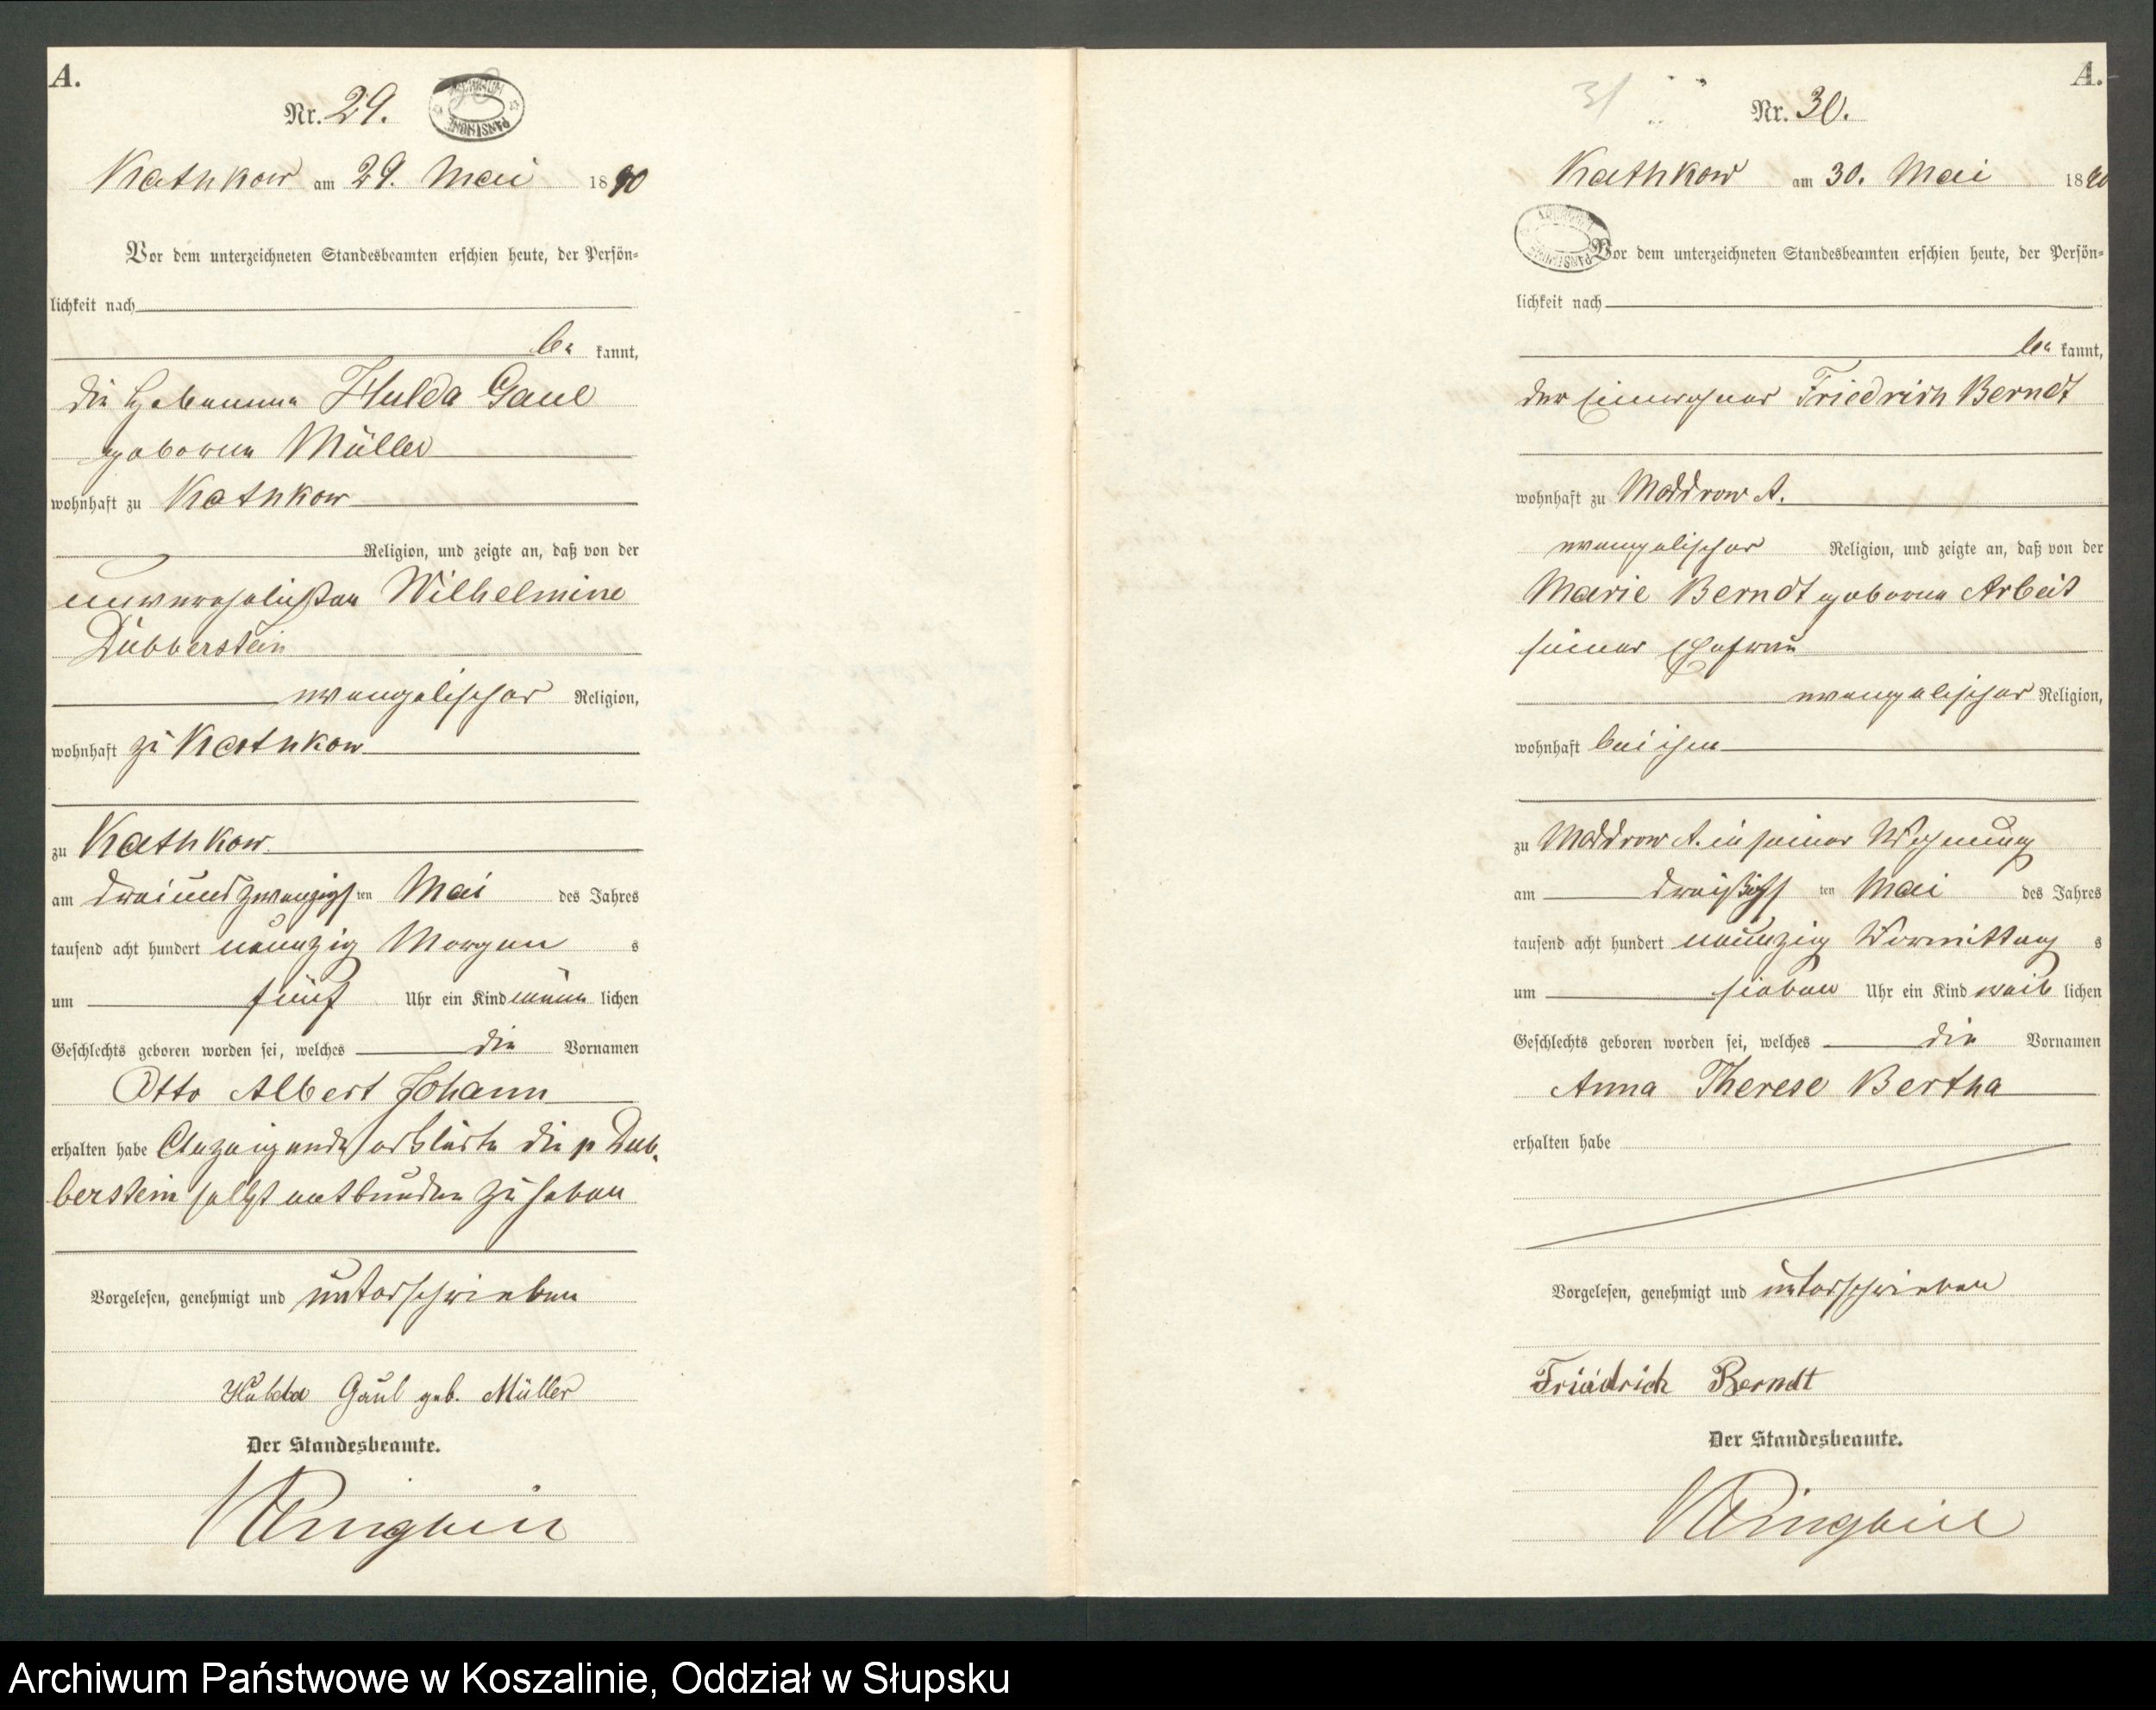 A.
Nr. 29.
ARCHIWUM PAŃSTWOWE
Kathkow am 29. Mai 1890
Vor dem unterzeichneten Standesbeamten erschien heute, der Persön-
lichkeit nach
be kannt,
die Hebamme Hulda Gaul
geborene Müller
wohnhaft zu Kathkow
Religion, und zeigte an, daß von der
unverehelichten Wilhelmine
Dubberstein
evangelischer Religion,
wohnhaft zu Kathkow
zu Kathkow
am dreiundzwanzigsten Mai des Jahres
tausend acht hundert neunzig Morgen s
um fünf Uhr ein Kind männ lichen
Geschlechts geboren worden sei, welches die Vornamen
Otto Albert Johann
erhalten habe Anzeigende erklärte die p Dub-
berstein selbst entbunden zu haben
Vorgelesen, genehmigt und unterschrieben
Hulda Gaul geb. Müller
Der Standesbeamte.
A.
31
Nr. 30.
Kathkow am 30. Mai 1890
ARCHIWUM PAŃSTWOWE
Vor dem unterzeichneten Standesbeamten erschien heute, der Persön-
lichkeit nach
be kannt,
der Einwohner Friedrich Berndt
wohnhaft zu Moddrow A.
evangelischer Religion, und zeigte an, daß von der
Marie Berndt geborene Arbeit
seiner Ehefrau
evangelischer Religion,
wohnhaft bei ihm
zu Moddrow A. in seiner Wohnung
am dreißigsten Mai des Jahres
tausend acht hundert neunzig Vormittag s
um sieben Uhr ein Kind weib lichen
Geschlechts geboren worden sei, welches die Vornamen
Anna Therese Bertha
erhalten habe
Vorgelesen, genehmigt und unterschrieben
Friedrich Berndt
Der Standesbeamte.
Archiwum Państwowe w Koszalinie, Oddział w Słupsku